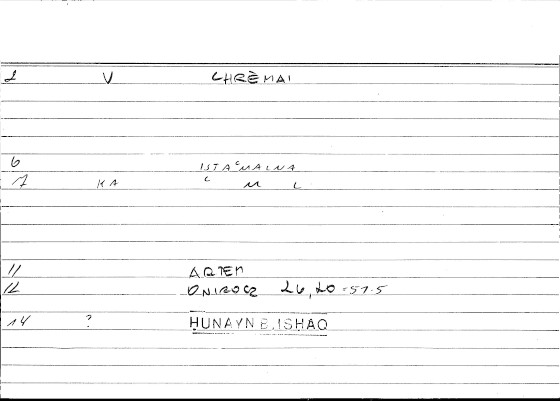 1 V CHRÈMAI
6 ISTAʿMALNA
7 KA ʿ M L
11 ARTEM
12 ONIROCR 26,20-57.5
14 ? ḤUNAYN B. ISHAQ